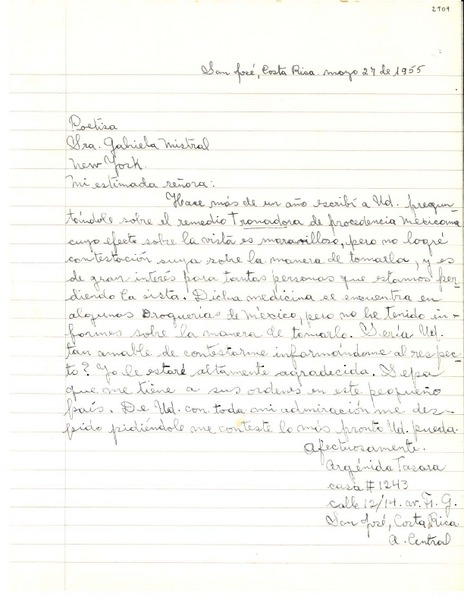 2909
San José, Costa Rica mayo 27 de 1955
Poetisa
Sra. Gabriela Mistral
New York.
Mi estimada señora:
Hace más de un año escribí a Ud. pregun-
tándole sobre el remedio Tronadora de procedencia Mexicana
cuyo efecto sobre la vista es maravilloso, pero no logré
contestación suya sobre la manera de tomarla, y es
de gran interés para tantas personas que estamos per-
diendo la vista. Dicha medicina se encuentra en
algunas Droguerías de México, pero no he tenido in-
formes sobre la manera de tomarlo. Sería Ud.
tan amable de contestarme informándome al respec-
to? Yo le estaré altamente agradecida. Sepa
que me tiene a sus ordenes en este pequeño
país. De Ud. con toda mi admiración me des-
pido pidiéndole me conteste lo más pronto Ud. pueda.
Afectuosamente.
Argénida
casa # 1243
calle 12/14. av.
San José, Costa Rica
A. Central